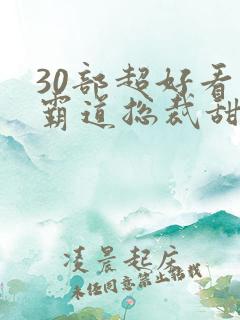 30部超好看
霸道总裁甜
凌晨起床
未经同意禁止搭我